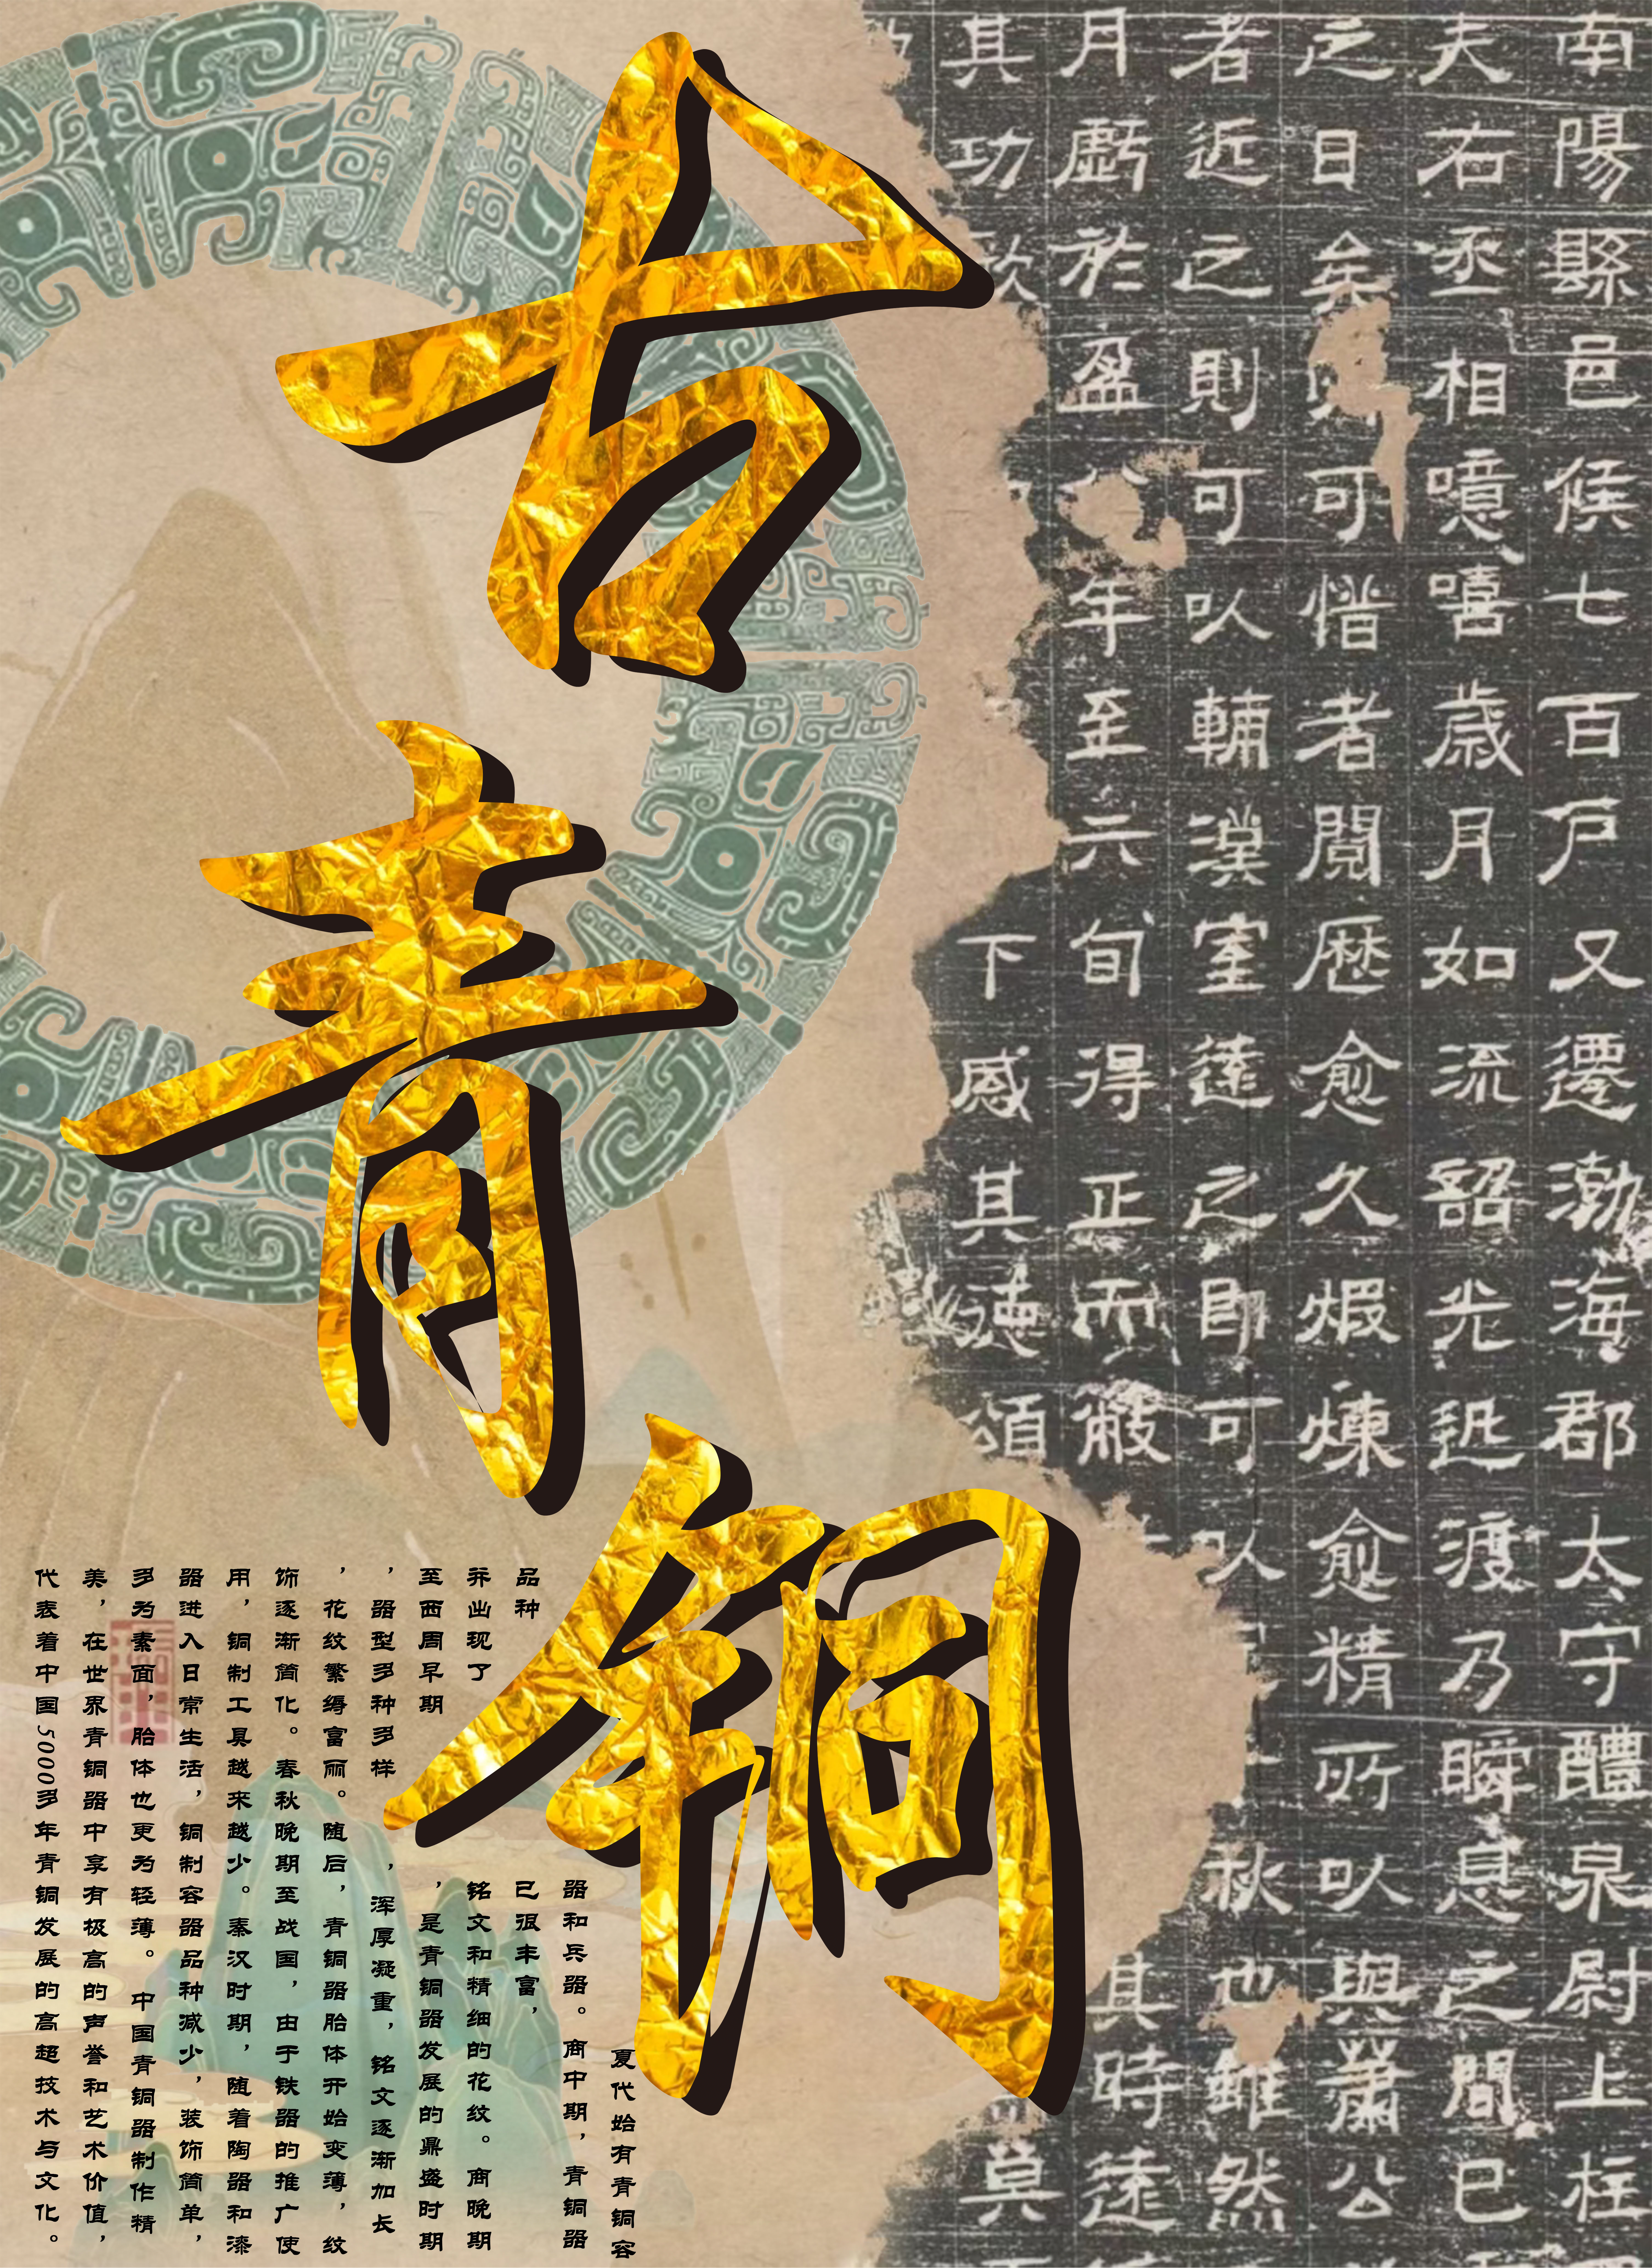 南陽縣邑候七百戸又遷渤海郡太守醴泉尉上柱
夫右丞相噫嘻歳月如流韶光迅渡乃瞬息之間已
之日矣可惜者閲歴愈久煆煉愈精所以與公
者近之則可以輔漢室遠之即可以秋也雖然
月虧於盈年至六旬得正而其時遠
其功下感其德頌莫
古青铜
夏代始有青铜容
器和兵器。商中期，青铜器
品种已很丰富，
并出现了铭文和精细的花纹。商晚期
至西周早期，是青铜器发展的鼎盛时期
，器型多种多样，浑厚凝重，铭文逐渐加长
，花纹繁缛富丽。随后，青铜器胎体开始变薄，纹
饰逐渐简化。春秋晚期至战国，由于铁器的推广使
用，铜制工具越来越少。秦汉时期，随着陶器和漆
器进入日常生活，铜制容器品种减少，装饰简单，
多为素面，胎体也更为轻薄。中国青铜器制作精
美，在世界青铜器中享有极高的声誉和艺术价值，
代表着中国5000多年青铜发展的高超技术与文化。